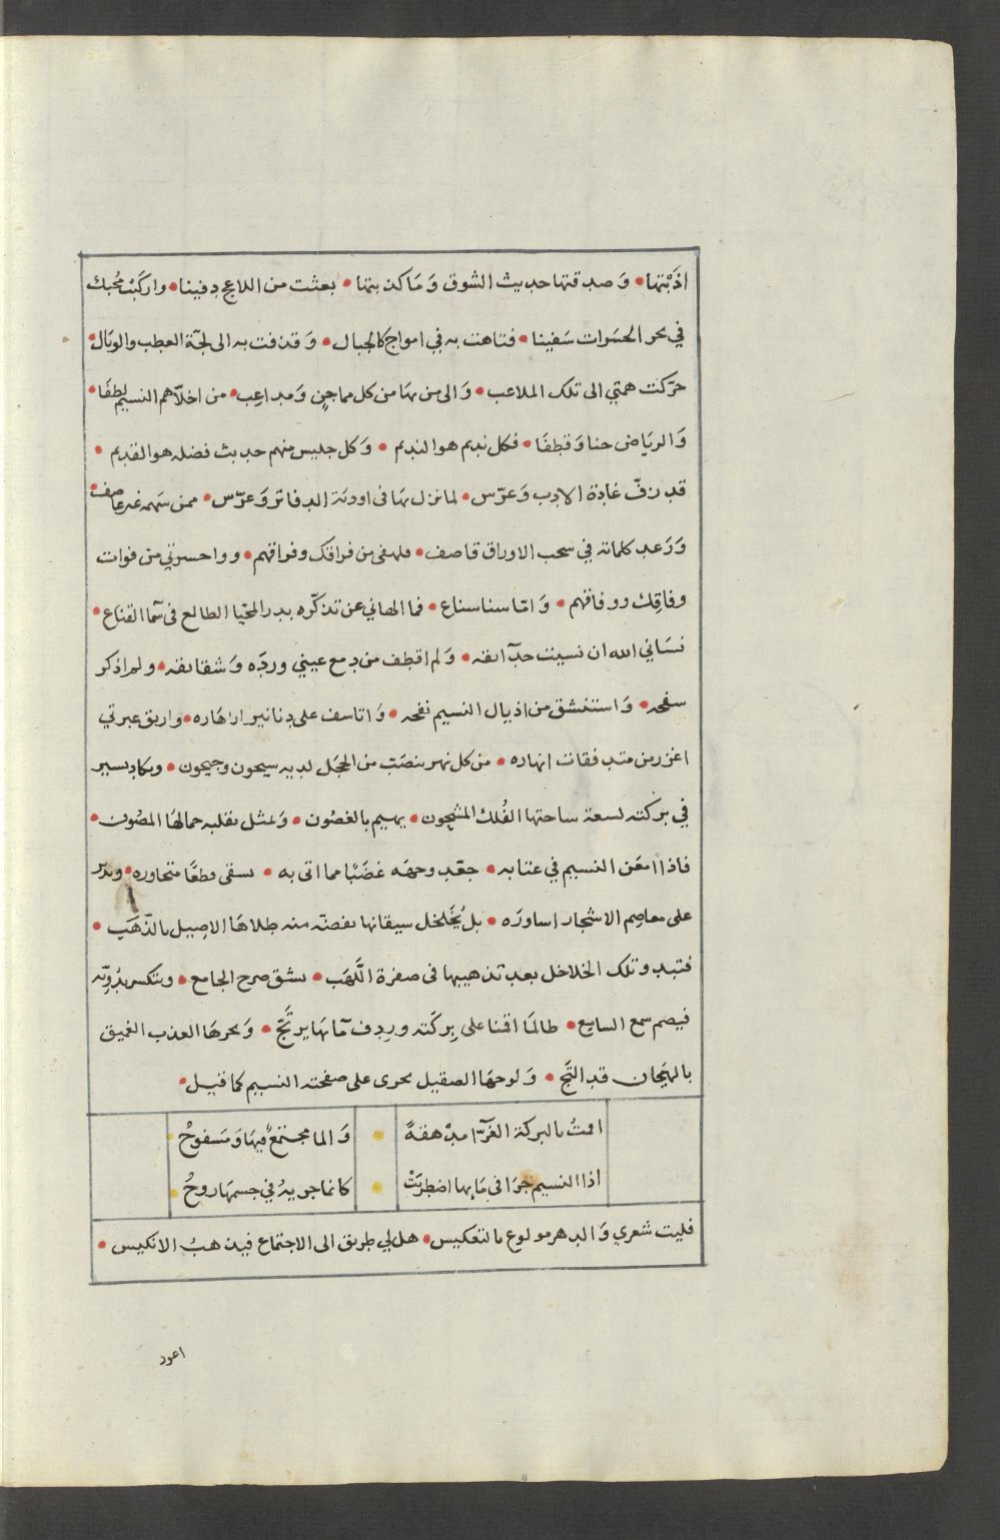 اذَبْتها • وَصدقتها حديث الشوق وَمَا كذبتها • بعثت من اللاعج دفينا • واركبْت مُحبك
في بحر الحسَرات سَفينا • فتاهت به في امواج كالجبال • وَقذفت به الى لجّة العطب والوبَال •
حرّكت همّتي الى تلك الملاعب • وَالى من بهَا من كل مماجنٍ وَمداعِب • من اخلّاهم النسيم لطفَا •
وَالريَاض جنا وَقطفَا • فكل نديم هو النديم • وَكل جليس منهم حديث فضله هو القديم •
قد زفّ غادة الادب وَعرّس • لما نزل بهَا في اودية الدفاتر وَعرّس • ممن سَهمه غير عاصف •
وَرَعد كلماته في سحب الاوراق قاصف • فلهفي من فراقك وفراقهم • وواحسرتي من فوات
وفاقِك ووفاقهم • وَامّا سنا سناع • فما الهاني عن تذكّره بدر المحيّا الطالع في سَمآ القناع •
نسَاني الله ان نسيت حدآئقه • وَلم اقطف من دمع عيني وردَه وَشقائقه • ولم اذكر
سفحه • وَاستنشق من اذيال النسيم نفحه • وَاتاسف على دنانير ازهَاره • واريق عبرتي
اغزر من متدفقات انهاره • من كل نهر ينصَبّ من الحجَل لديه سيحون وجيحون • ويكاد يسير
في بركته لسعة ساحتها الفُلك المشحون • يهيم بالغصُون • وَيمثل بقلبه جمالهَا المصُون •
فاذا امعَن النسيم في عتابه • جعّد وجهَه غضَبًا مما اتى به • يسقى قطعًا متجاوره • ويدَر
على معاصِم الاشجار اساورَه • بل يُخَلخل سيقانها بفضته منه طلاهَا الاصِيل بالذّهَب •
فتبدو تلك الخلاخل بعد تذهيبها في صفرة اللّهَب • يشق صرح الجامع • ويتكسر بدُوِيّه
فيصم سمع السامِع • طالمَا اقنا على بِركَته وردِف مَآئهَا يرتَجّ • وَبحرهَا العذب الغميق
بالهيَجان قد التَجّ • وَلوحهَا الصقيل يجرى على صفحته النسيم كما قيل •
امتُ بالبركة الغرّآ مدْهقةً • وَالما مجتمعٌ فيهَا وَمَسفوحُ •
اذا النسيم جرَا في مَآئها اضطربَتْ • كانما جريهُ في جسمهَا روحُ •
فليت شعري وَالدهر مولوع بالتعكيس • هل لي طريق الى الاجتماع فيذهبُ الانكيس •
اعود